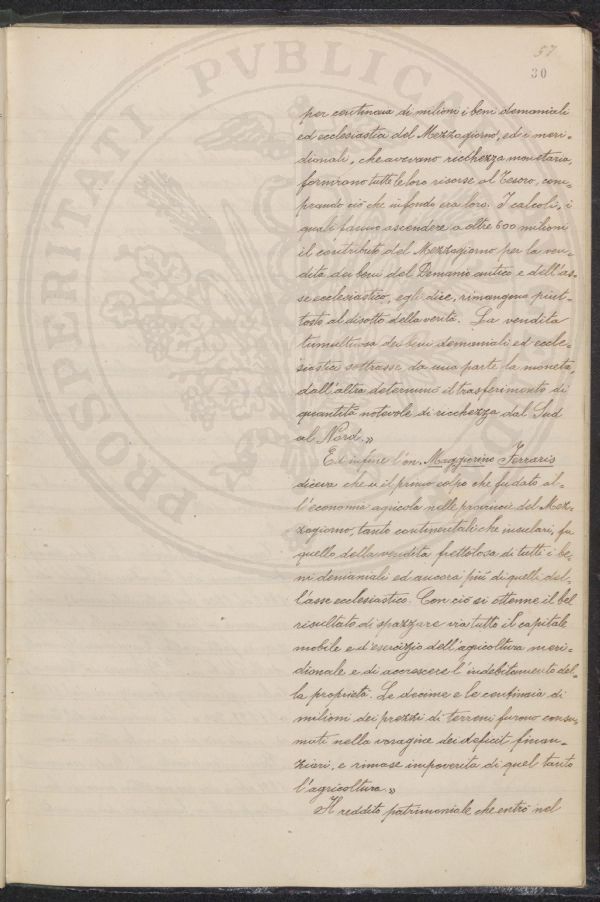 57
30
per centinaia di milioni i beni demaniali
ed ecclesiastici del Mezzogiorno, ed i meri-
dionali, che avevano ricchezza monetaria,
fornirono tutte le loro risorse al Tesoro, com-
prando ciò che in fondo era loro. I calcoli, i
quali fanno ascendere a oltre 600 milioni
il contributo del Mezzogiorno per la ven-
dita dei beni del Demanio antico e dell'as-
se ecclesiastico, egli dice, rimangono piut-
tosto al disotto della verità. La vendita
tumultuosa dei beni demaniali ed eccle-
siastici sottrasse da una parte la moneta,
dall'altra determinò il trasferimento di
quantità notevole di ricchezza dal Sud
al Nord.»
Ed infine l'on. Maggiorino Ferraris
diceva che « il primo colpo che fu dato al-
l'economia agricola nelle provincie del Mez-
zogiorno, tanto continentali che insulari, fu
quello della vendita frettolosa di tutti i be-
ni demaniali ed ancora più di quelli del-
l'asse ecclesiastico. Con ciò si ottenne il bel
risultato di spazzare via tutto il capitale
mobile e d'esercizio dell'agricoltura meri-
dionale e di accrescere l'indebitamento del-
la proprietà. Le decine e le centinaia di
milioni dei prezzi di terreni furono consu-
mati nella voragine dei deficit finan-
ziari, e rimase impoverita di quel tanto
l'agricoltura.»
Il reddito patrimoniale che entrò nel
PROSPERITATI PVBLICAE